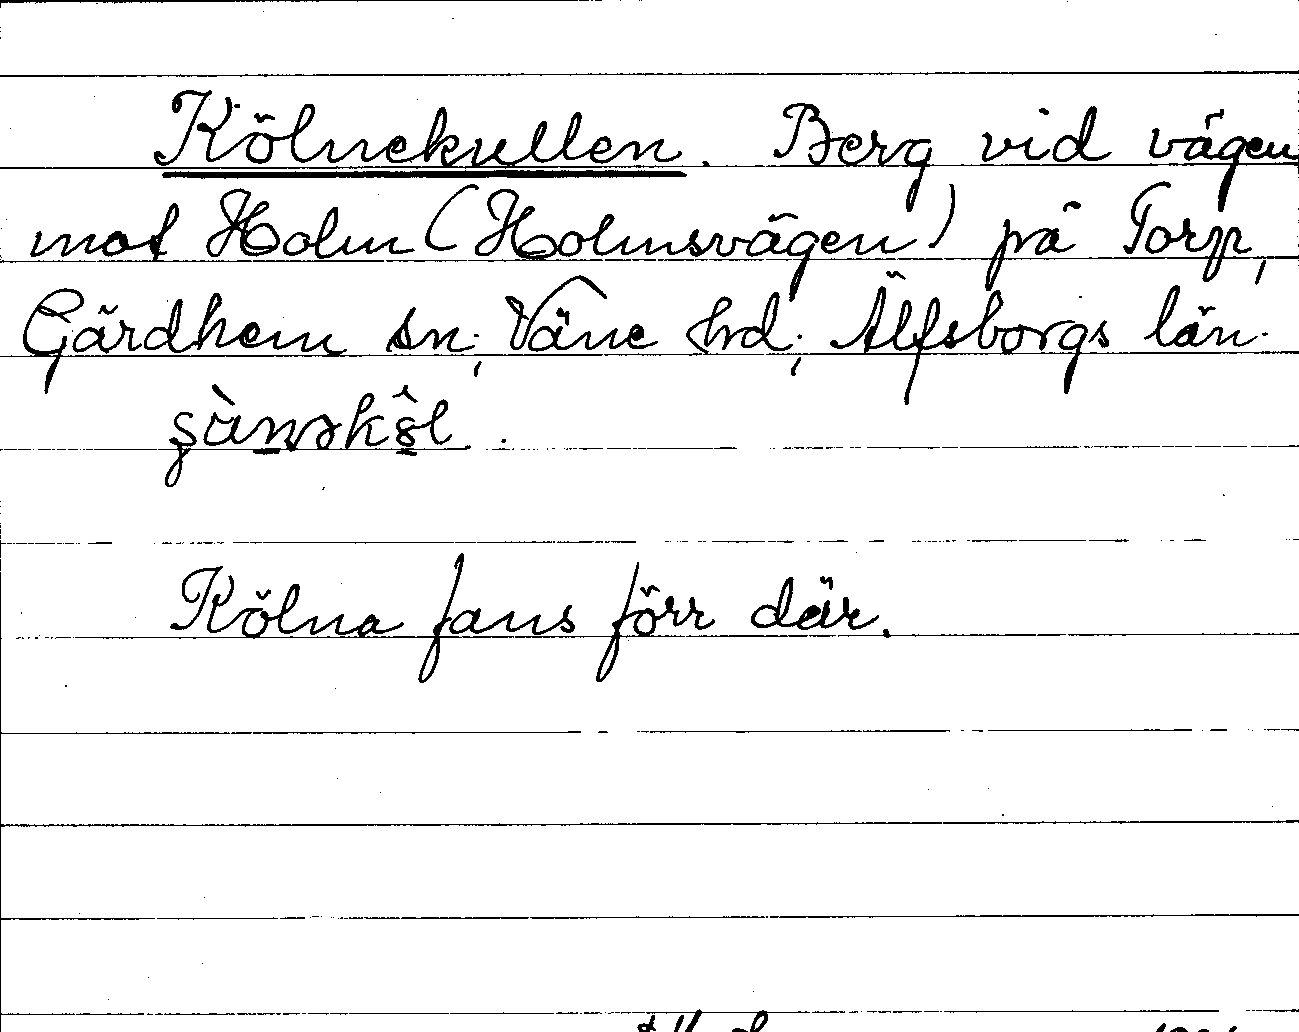 Kölnekullen. Berg vid vägen
mot Holm (Holmsvägen) på Torp,
Gärdhem sn; Väne hd; Älfsborgs län.
Kölna fans förr där.